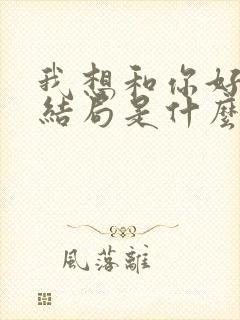 我想和你好
結局是什麼
風落離